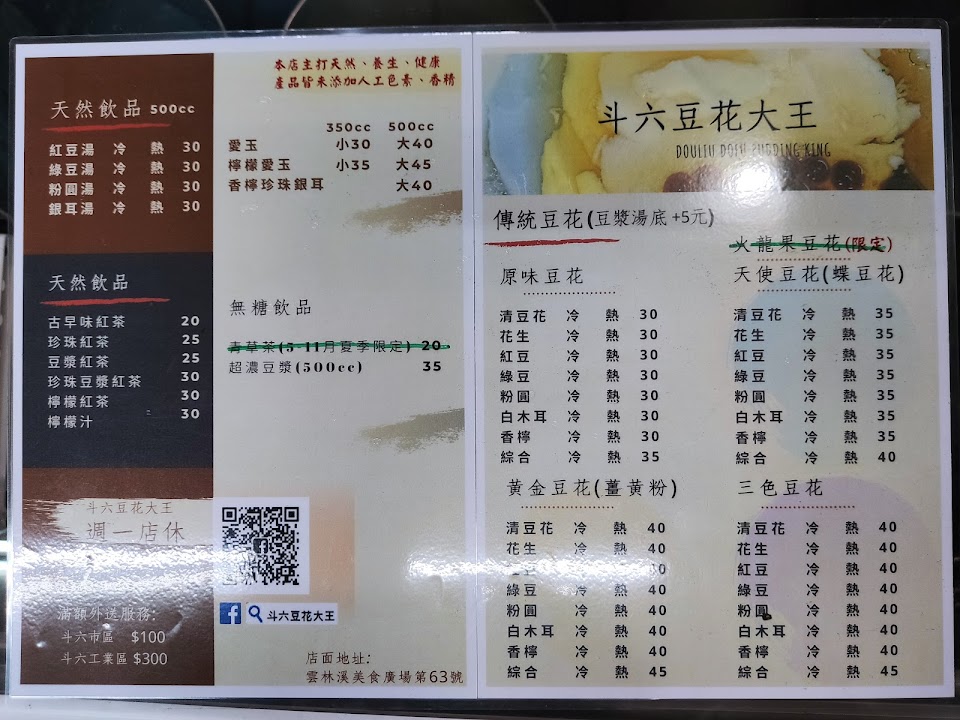 天然飲品 500cc
紅豆湯 冷 熱 30
綠豆湯 冷 熱 30
粉圓湯 冷 熱 30
銀耳湯 冷 熱 30
天然飲品
古早味紅茶 20
珍珠紅茶 25
豆漿紅茶 25
珍珠豆漿紅茶 30
檸檬紅茶 30
檸檬汁 30
斗六豆花大王
週一店休
滿額外送服務:
斗六市區 $100
斗六工業區 $300
本店主打天然、養生、健康
產品皆未添加人工色素、香精
350cc 500cc
愛玉 小30 大40
檸檬愛玉 小35 大45
香檸珍珠銀耳 大40
無糖飲品
青草茶(5-11月夏季限定) 20
超濃豆漿(500cc) 35
斗六豆花大王
店面地址:
雲林溪美食廣場第63號
斗六豆花大王
DOULIU DOFU PUDDING KING
傳統豆花(豆漿湯底+5元)
原味豆花
清豆花 冷 熱 30
花生 冷 熱 30
紅豆 冷 熱 30
綠豆 冷 熱 30
粉圓 冷 熱 30
白木耳 冷 熱 30
香檸 冷 熱 30
綜合 冷 熱 35
火龍果豆花(限定)
天使豆花(蝶豆花)
清豆花 冷 熱 35
花生 冷 熱 35
紅豆 冷 熱 35
綠豆 冷 熱 35
粉圓 冷 熱 35
白木耳 冷 熱 35
香檸 冷 熱 35
綜合 冷 熱 40
黃金豆花(薑黃粉)
清豆花 冷 熱 40
花生 冷 熱 40
紅豆 冷 熱 40
綠豆 冷 熱 40
粉圓 冷 熱 40
白木耳 冷 熱 40
香檸 冷 熱 40
綜合 冷 熱 45
三色豆花
清豆花 冷 熱 40
花生 冷 熱 40
紅豆 冷 熱 40
綠豆 冷 熱 40
粉圓 冷 熱 40
白木耳 冷 熱 40
香檸 冷 熱 40
綜合 冷 熱 45